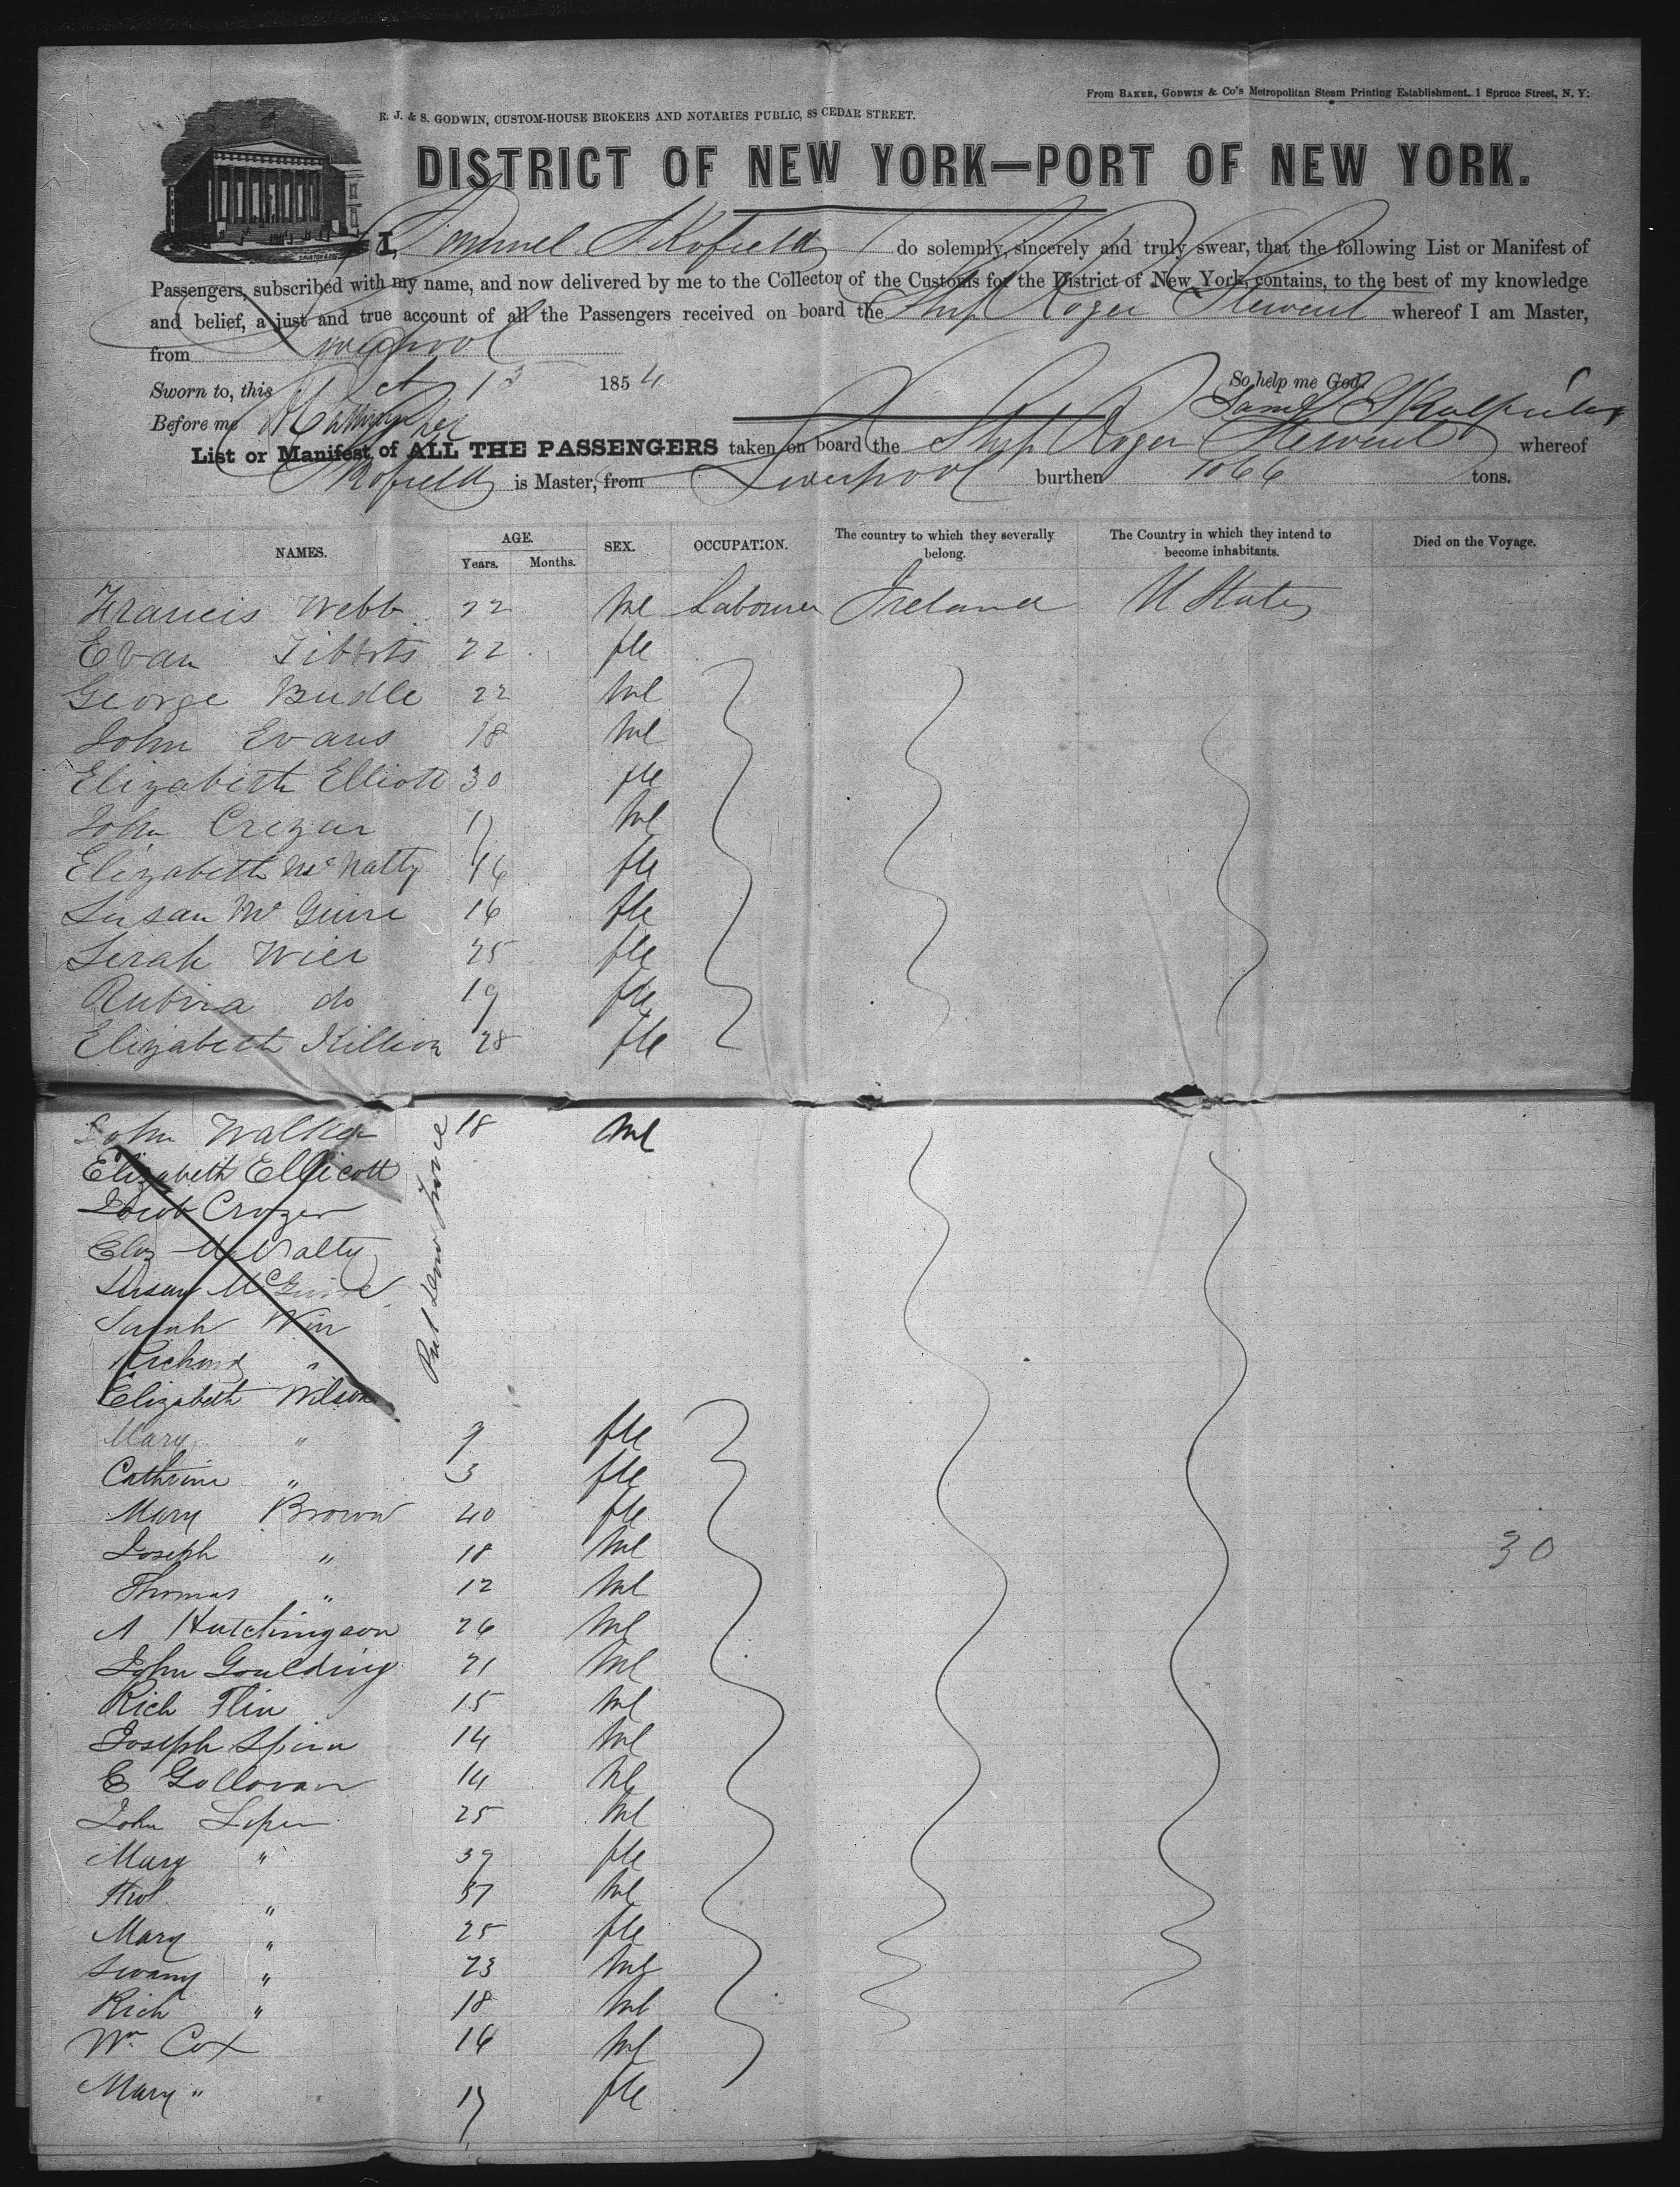 From BAKER, GODWIN & Co's Metropolitan Steam Printing Establishment, 1 Spruce Street, N. Y.
R. J. & S. GODWIN, CUSTOM-HOUSE BROKERS AND NOTARIES PUBLIC, 88 CEDAR STREET.
DISTRICT OF NEW YORK—PORT OF NEW YORK.
I, Samuel Skofield do solemnly, sincerely and truly swear, that the following List or Manifest of
Passengers, subscribed with my name, and now delivered by me to the Collector of the Customs for the District of New York, contains, to the best of my knowledge
and belief, a just and true account of all the Passengers received on board the Ship Roger Stewart whereof I am Master,
from Liverpool
Sworn to, this Oct 13 1854 So help me God.
Before me Saml Skolfield
List or Manifest of ALL THE PASSENGERS taken on board the Ship Roger Stewart whereof
Skofield is Master, from Liverpool burthen 1066 tons.
NAMES. AGE. Years. Months. SEX. OCCUPATION. The country to which they severally belong. The Country in which they intend to become inhabitants. Died on the Voyage.
Francis Webb 22 Ml Labourer Ireland U States
Evan Tibbots 22 fle
George Budle 22 Ml
John Evans 18 Ml
Elizabeth Elliott 30 fle
John Crezar 17 Ml
Elizabeth McNatty 46 fle
Susan McGuire 16 fle
Serah Wier 25 fle
Rubina do 19 fle
Elizabeth Killion 28 fle
John Walker 18 Ml
Elizabeth Ellicott
Jacob Crozer
Eliz McNatty
Susan McGuire
Sarah Wir
Richard "
Elizabeth Wilson
Put down twice
Mary " 9 fle
Cathrine " 3 fle
Mary Brown 40 fle
Joseph " 18 Ml 30
Thomas " 12 Ml
A Hutchingson 26 Ml
John Goulding 21 Ml
Rich Flin 15 Ml
Joseph Spinn 14 Ml
E Gollovan 14 Ml
John Lipin 25 Ml
Mary " 39 fle
" 37 Ml
Mary " 25 fle
" 23 Ml
Rich " 18 Ml
Wm Cox 16 Ml
Mary " 17 fle